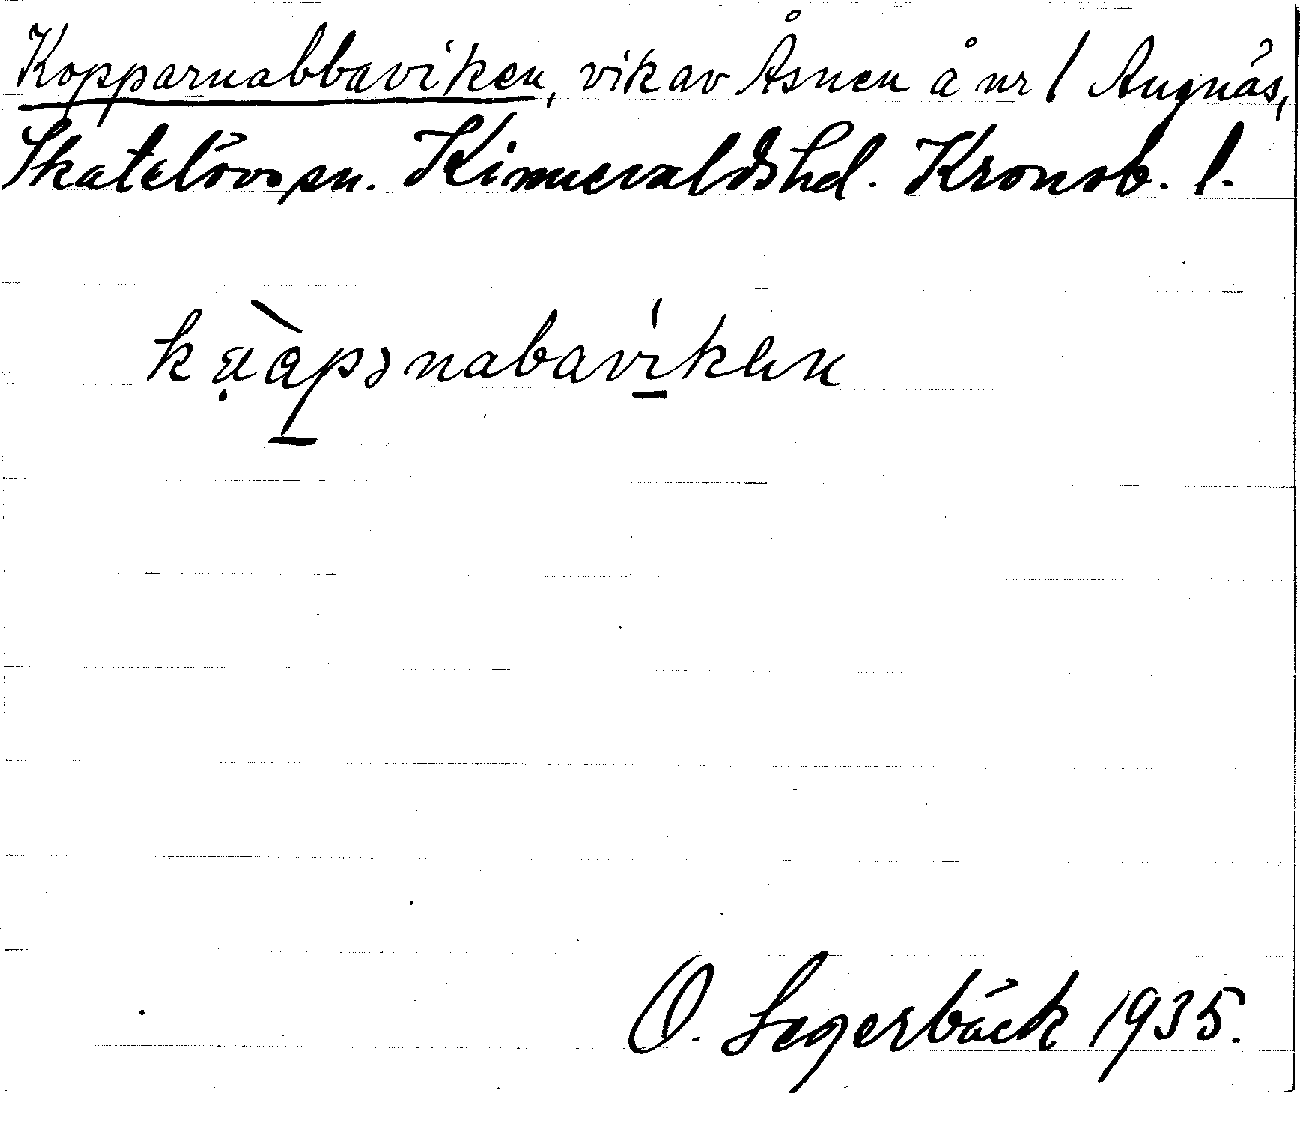 Kopparnabbaviken, vik av Åsnen å nr 1 Angnäs,
Skatelövs sn. Kinnevalds hd. Kronob. l.
kṳɑ̀pənabavikən
O. Segerbäck 1935.